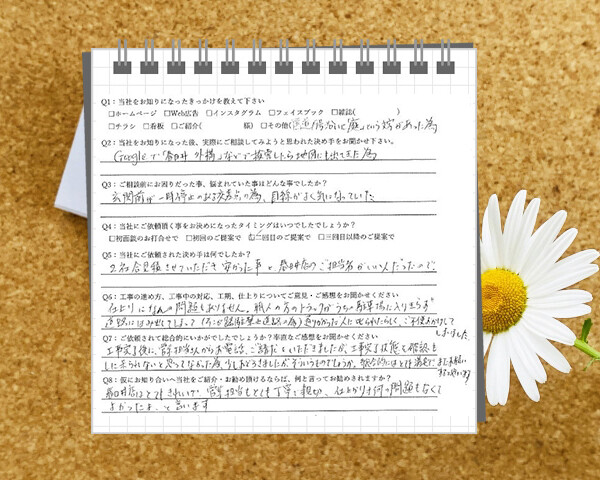 Q1：当社をお知りになったきっかけを教えて下さい
□ホームページ □Web広告 □インスタグラム □フェイスブック □雑誌( )
□チラシ □看板 □ご紹介( 様) □その他( という があった為
Q2：当社をお知りになった後、実際にご相談してみようと思われた決め手をお聞かせ下さい。
Googleで「春日井 外構」などで検索したら地図にも出てきた為
Q3：ご相談前にお困りだった事、悩まれていた事はどんな事でしたか？
玄関前が一時停止のある交差点の為、目線がよく気になっていた
Q4：当社にご依頼頂く事をお決めになったタイミングはいつでしたでしょうか？
□初面談のお打合せで □初回のご提案で ☑二回目のご提案で □三回目以降のご提案で
Q5：当社にご依頼された決め手は何でしたか？
2社合見積させていただき安かった事と春日井店のご担当者がいい人だったので
Q6：工事の進め方、工事中の対応、工期、仕上りについてご意見・ご感想をお聞かせください
仕上りになんの問題もありません。職人の方のトラックがうちの駐車場に入りきらず
道路にはみ出てしまって 通りがかった人に られたらしく、ご不便おかけして
しまいました
Q7：ご依頼されて総合的にいかがでしたでしょうか？率直なご感想をお聞かせください
工事完了後に、営業担当さんからお電話、ご連絡をいただきましたが、工事完了状態を確認を
しに来られないと思ってなかった そういうものでしょうか、総合的にはとても満足で
Q8：仮にお知り合いへ当社をご紹介・お勧め頂けるならば、何と言ってお勧めされますか？
春日井店はとてもきれいで、営業担当もとても丁寧で親切、仕上がりは何の問題もなくて
よかったよ、と言います